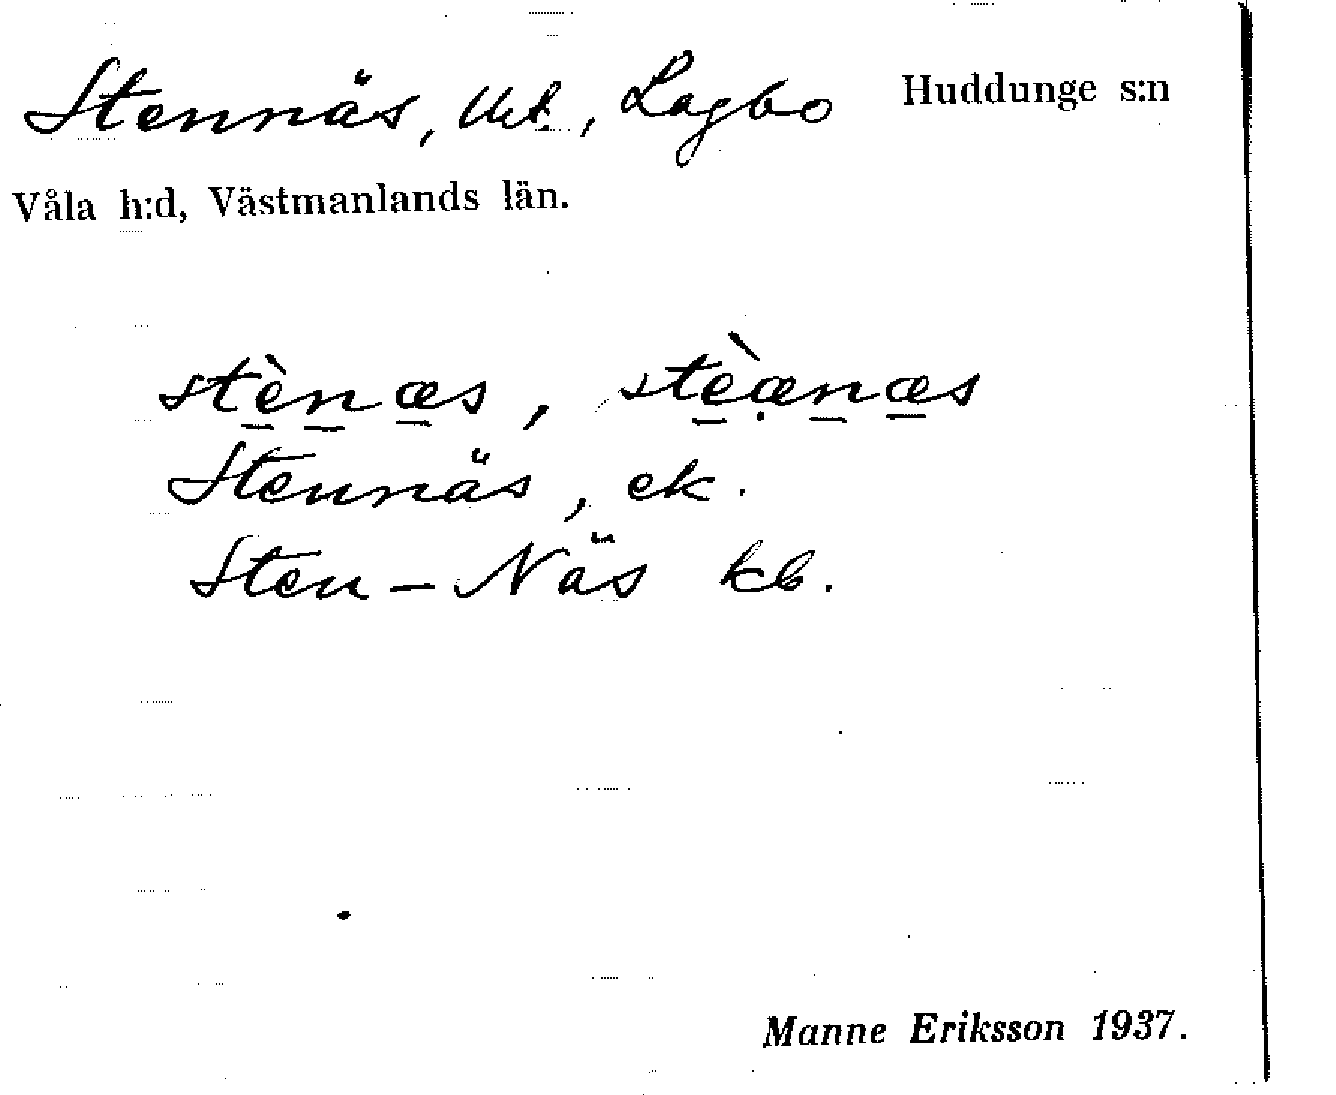 Stennäs, Utt., Lagbo Huddunge s:n
Våla h:d, Västmanlands län.
stènæs, stèænæs
Stennäs, ek.
Sten-Näs kb.
Manne Eriksson 1937.